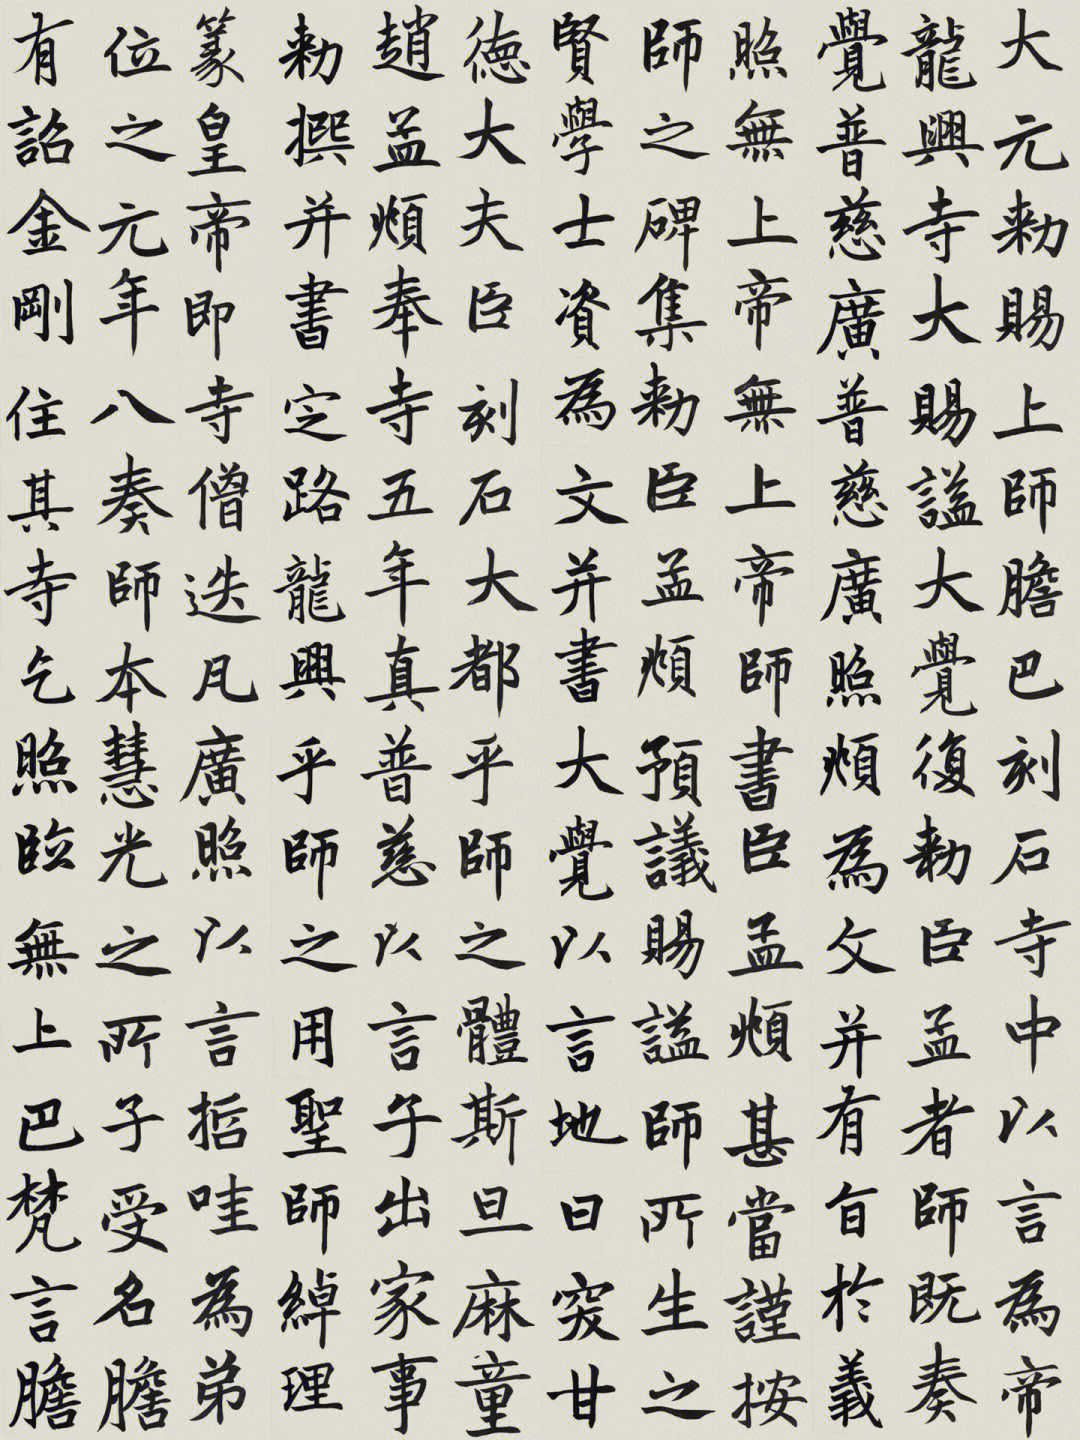 大元勅賜上師膽巴刻石寺中以言為帝
龍興寺大賜謚大覺復勅臣孟者師既奏
覺普慈廣普慈廣照頫為文并有旨於義
照無上帝無上帝師書臣孟頫甚當謹按
師之碑集勅臣孟頫預議賜謚師所生之
賢學士資為文并書大覺以言地曰突甘
德大夫臣刻石大都乎師之體斯旦麻童
趙孟頫奉寺五年真普慈以言子出家事
勅撰并書定路龍興乎師之用聖師綽理
篆皇帝即寺僧迭凡廣照以言哲哇為弟
位之元年八奏師本慧光之所子受名膽
有詔金剛住其寺乞照臨無上巴梵言膽